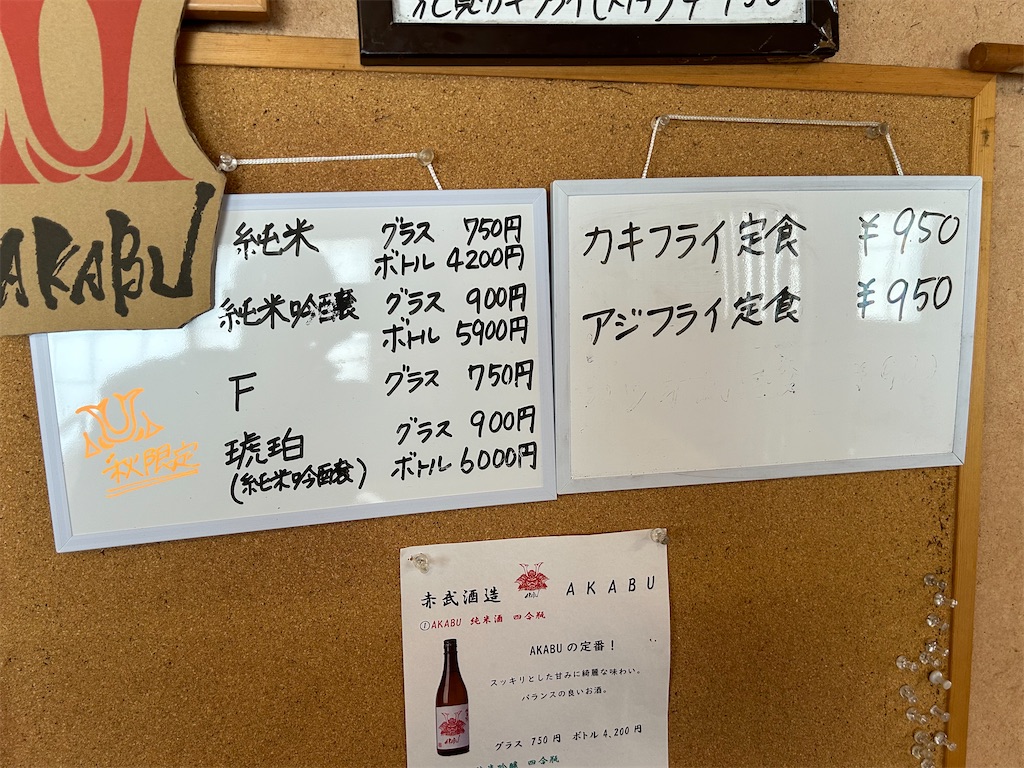 AKABU
純米 グラス 750円
ボトル 4200円
純米吟醸 グラス 900円
ボトル 5900円
F グラス 750円
秋限定
琥珀 グラス 900円
(純米吟醸) ボトル 6000円
カキフライ定食 ¥950
アジフライ定食 ¥950
赤武酒造 AKABU AKABU
①AKABU 純米酒 四合瓶
AKABUの定番!
スッキリとした甘みに綺麗な味わい。
バランスの良いお酒。
グラス 750円 ボトル 4,200円
純米吟醸 四合瓶